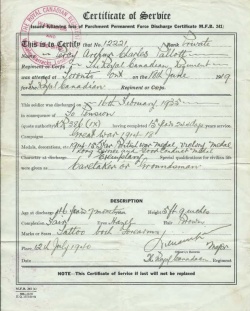 Certificate of Service
Issued following loss of Parchment Permanent Force Discharge Certificate (M.F.B. 341)
This is to Certify that No. 12221 Rank Private
Name Charles Talbott
Regiment or Corps The Royal Canadian Regiment
was attested at Toronto Ont on the 16th June 19
in Royal Canadian Regiment or Corps.
This soldier was discharged on 16th February 1935
in consequence of To Pension
(quote authority) having served years service
Campaigns Great War 1914-18
Medals, decorations, etc. 1914-15 Star British War Medal, Victory Medal
Long Service and Good Conduct Medal
Character Exemplary Special qualifications for civilian life
Caretaker or Groundsman
DESCRIPTION
Age at discharge 46 years 9 months Height 5 ft 9 inches
Complexion Fair Eyes Hazel Hair Brown
Marks or Scars Tattoo both forearms
Place
Date 12th July 1940 Major
The Royal Canadian Regiment
NOTE—This Certificate of Service if lost will not be replaced
M.F.B. 341